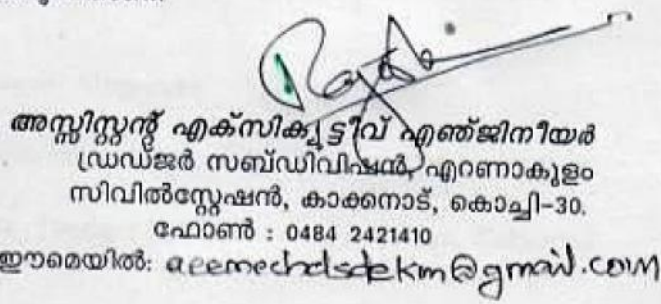 അസ്സിസ്റ്റന്റ് എക്സിക്യൂട്ടീവ് എഞ്ജിനീയർ
ഡ്രഡ്ജർ സബ്ഡിവിഷൻ, എറണാകുളം
സിവിൽസ്റ്റേഷൻ, കാക്കനാട്, കൊച്ചി-30.
ഫോൺ : 0484 2421410
ഈമെയിൽ: aeemechdsdekm@gmail.com